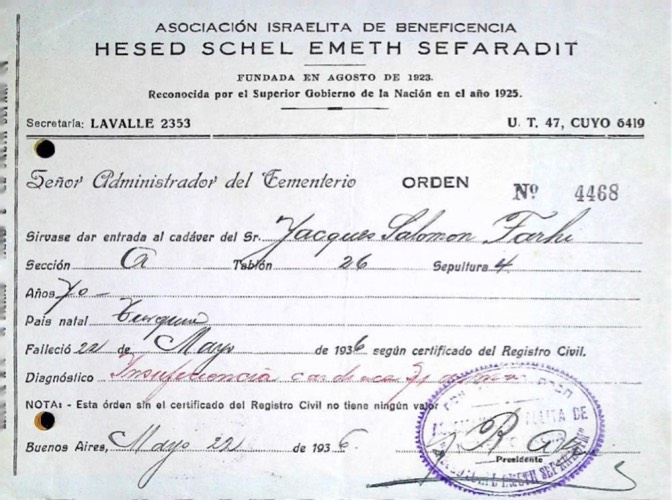 ASOCIACIÓN ISRAELITA DE BENEFICENCIA
HESED SCHEL EMETH SEFARADIT
FUNDADA EN AGOSTO DE 1923.
Reconocida por el Superior Gobierno de la Nación en el año 1925.
Secretaría: LAVALLE 2353 U. T. 47, CUYO 6419
Señor Administrador del Cementerio ORDEN Nº 4468
Sirvase dar entrada al cadáver del Sr. Jacques Salomon Farhi
Sección A Tablón 26 Sepultura 4
Años 70
Pais natal Turquia
Falleció 22 de Mayo de 1936 según certificado del Registro Civil.
Diagnóstico Insuficiencia cardiaca
NOTA: - Esta órden sin el certificado del Registro Civil no tiene ningún valor
Buenos Aires, Mayo 22 de 1936
Presidente